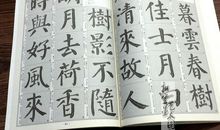 暮雲春樹
佳士月
清來故人
樹影不隨
月去荷香
時與好風來